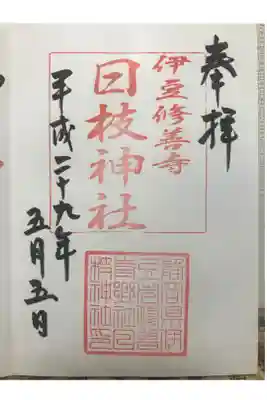 奉拝
伊豆修善寺
日枝神社
平成二十九年
五月五日